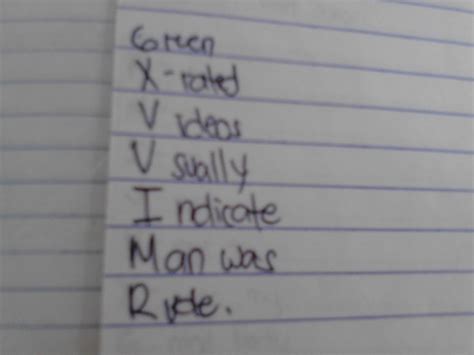 Green
X-rated
Videos
Usually
Indicate
Man was
Rude.